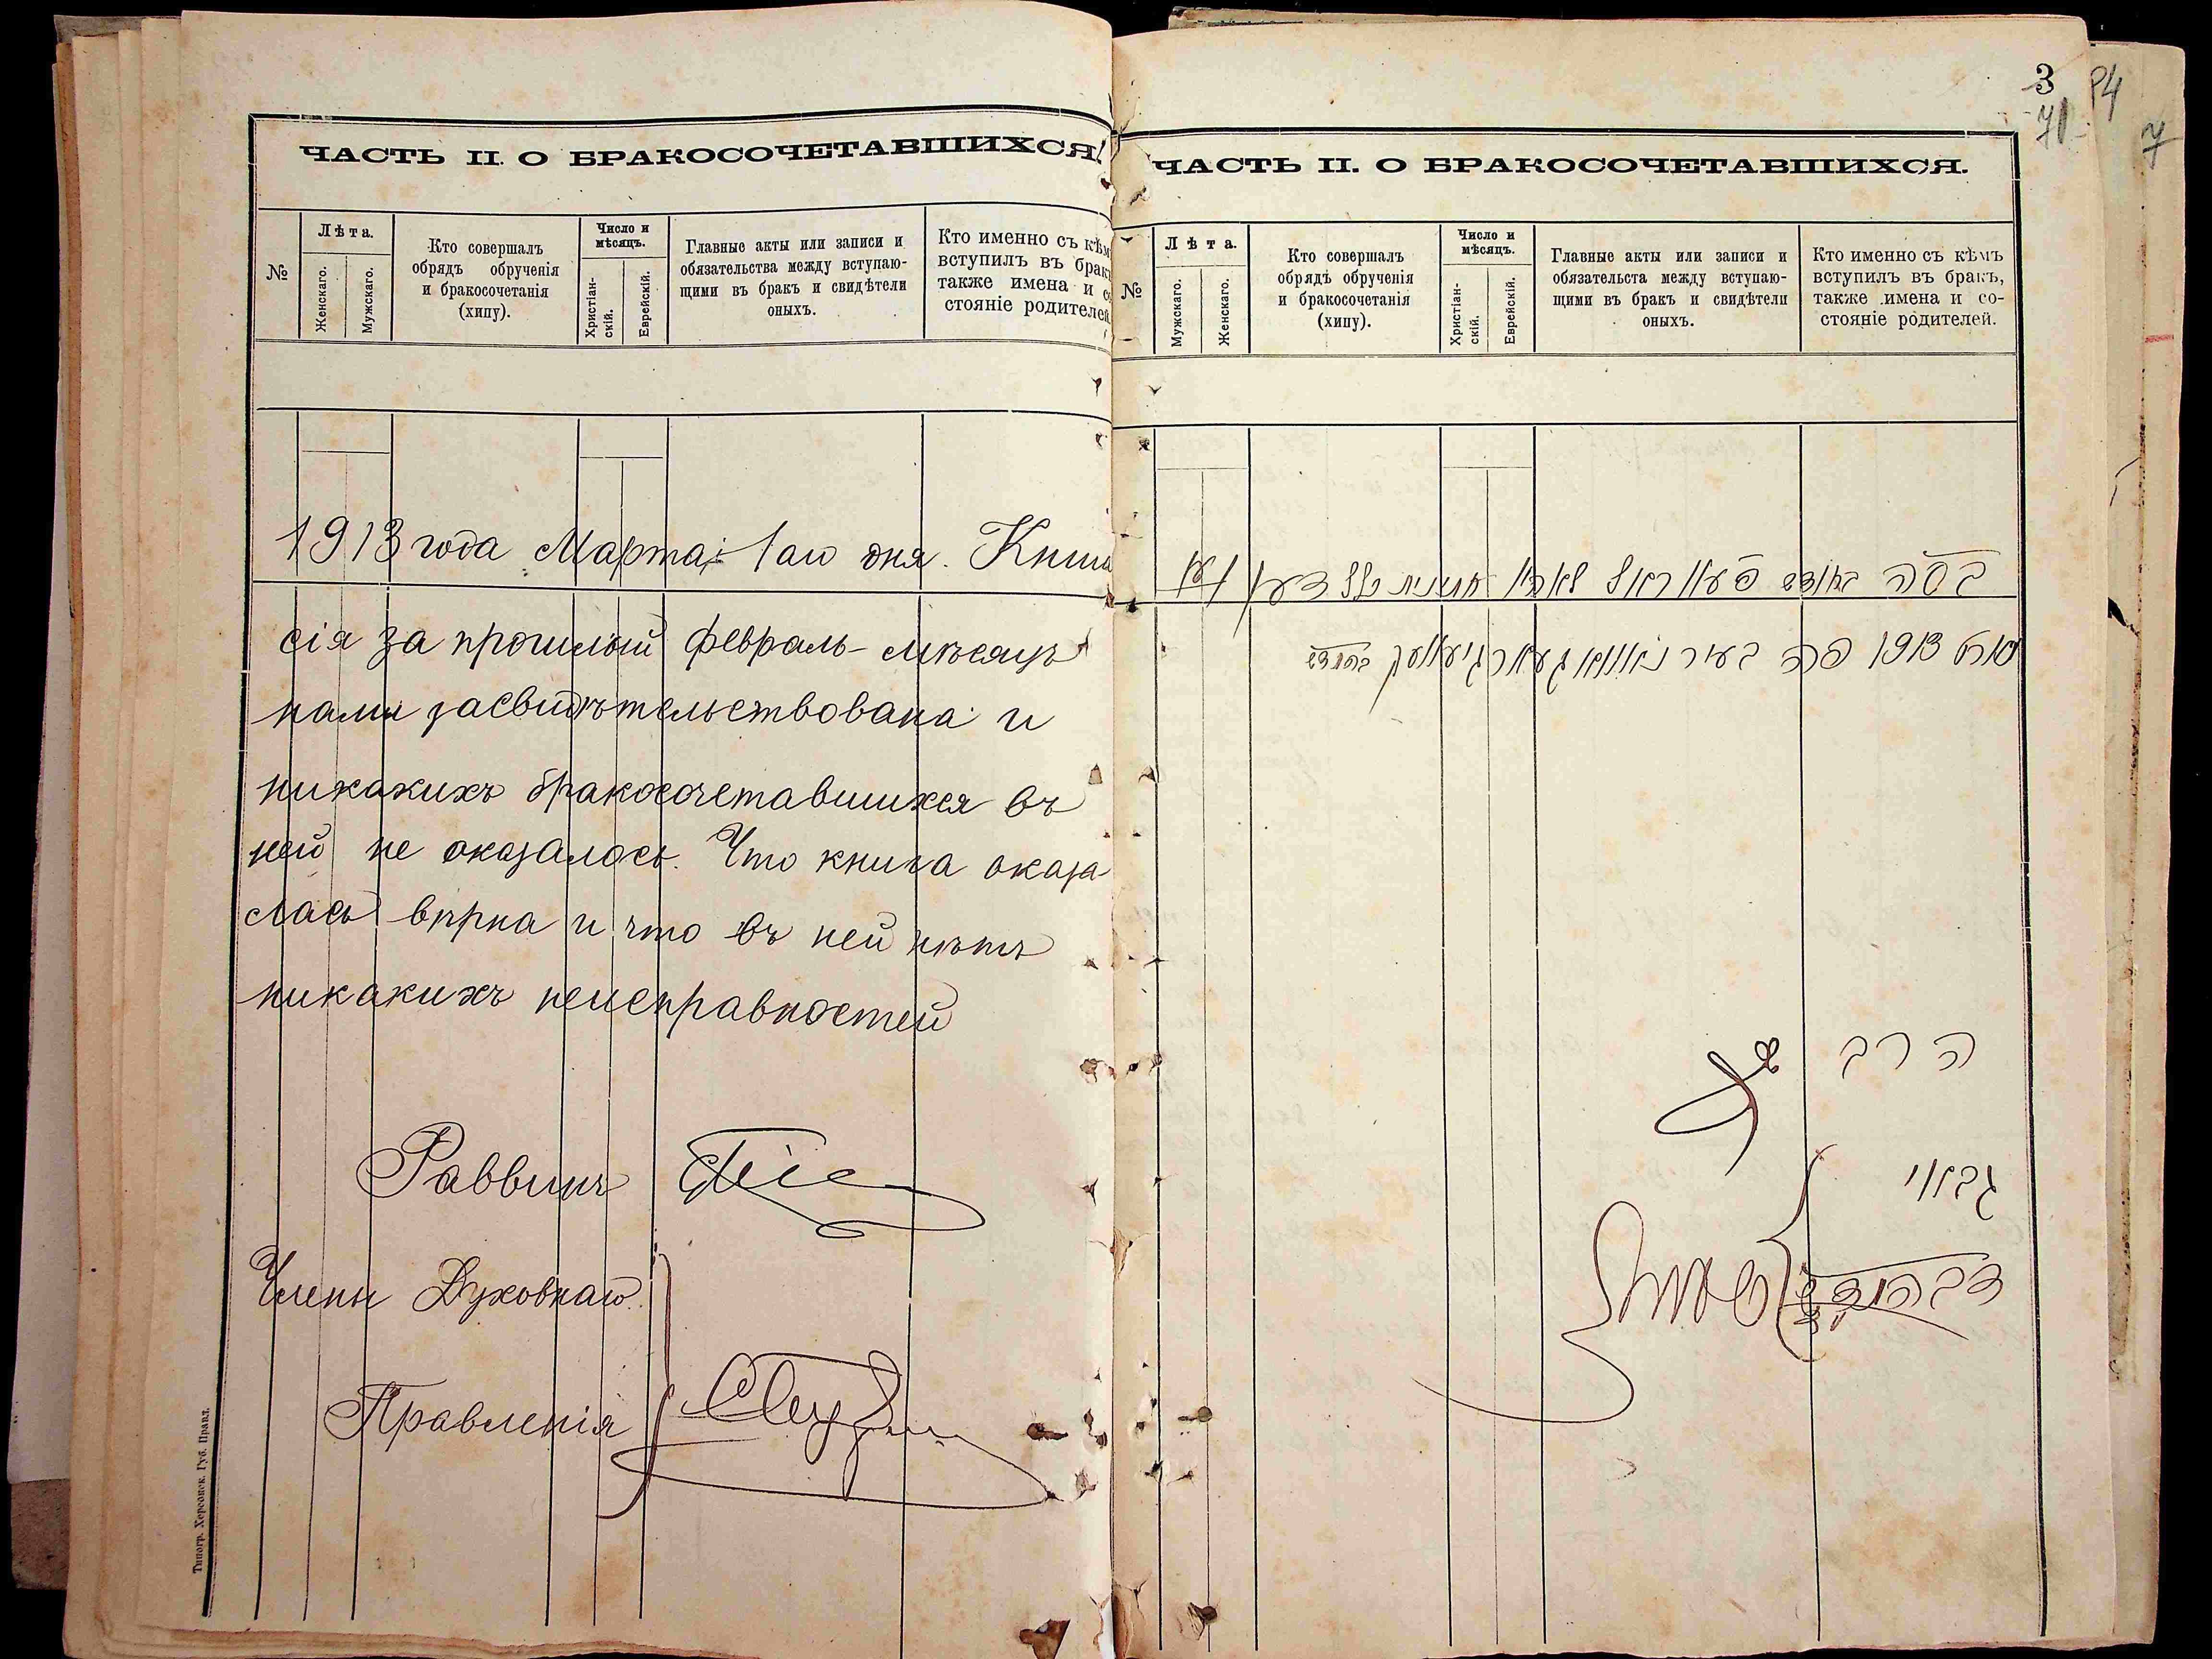 ЧАСТЬ II. О БРАКОСОЧЕТАВШИХСЯ.
№
Лѣта.
Женскаго.
Мужскаго.
Кто совершалъ
обрядъ обрученія
и бракосочетанія
(хипу).
Число и
мѣсяцъ.
Христіан-
скій.
Еврейскій.
Главные акты или записи и
обязательства между вступаю-
щими въ бракъ и свидѣтели
оныхъ.
Кто именно съ кѣм
вступилъ въ брак
также имена и со
стояніе родителей
1913 года Марта 1аго дня. Книга
сія за прошлый февраль-мѣсяцъ
нами засвидѣтельствована и
никакихъ бракосочетавшихся въ
ней не оказалось. Что книга оказа-
лась вѣрна и что въ ней нѣтъ
никакихъ неисправностей
Раввинъ
Члены Духовнаго
Правленія
Типогр. Херсонск. Губ. Правл.
3
71
84
7
ЧАСТЬ II. О БРАКОСОЧЕТАВШИХСЯ.
№
Лѣта.
Мужскаго.
Женскаго.
Кто совершалъ
обрядъ обрученія
и бракосочетанія
(хипу).
Число и
мѣсяцъ.
Христіан-
скій.
Еврейскій.
Главные акты или записи и
обязательста между вступаю-
щими въ бракъ и свидѣтели
оныхъ.
Кто именно съ кѣмъ
вступилъ въ бракъ,
также имена и со-
стояніе родителей.
1913 פה בעיר
הרב
גבאי